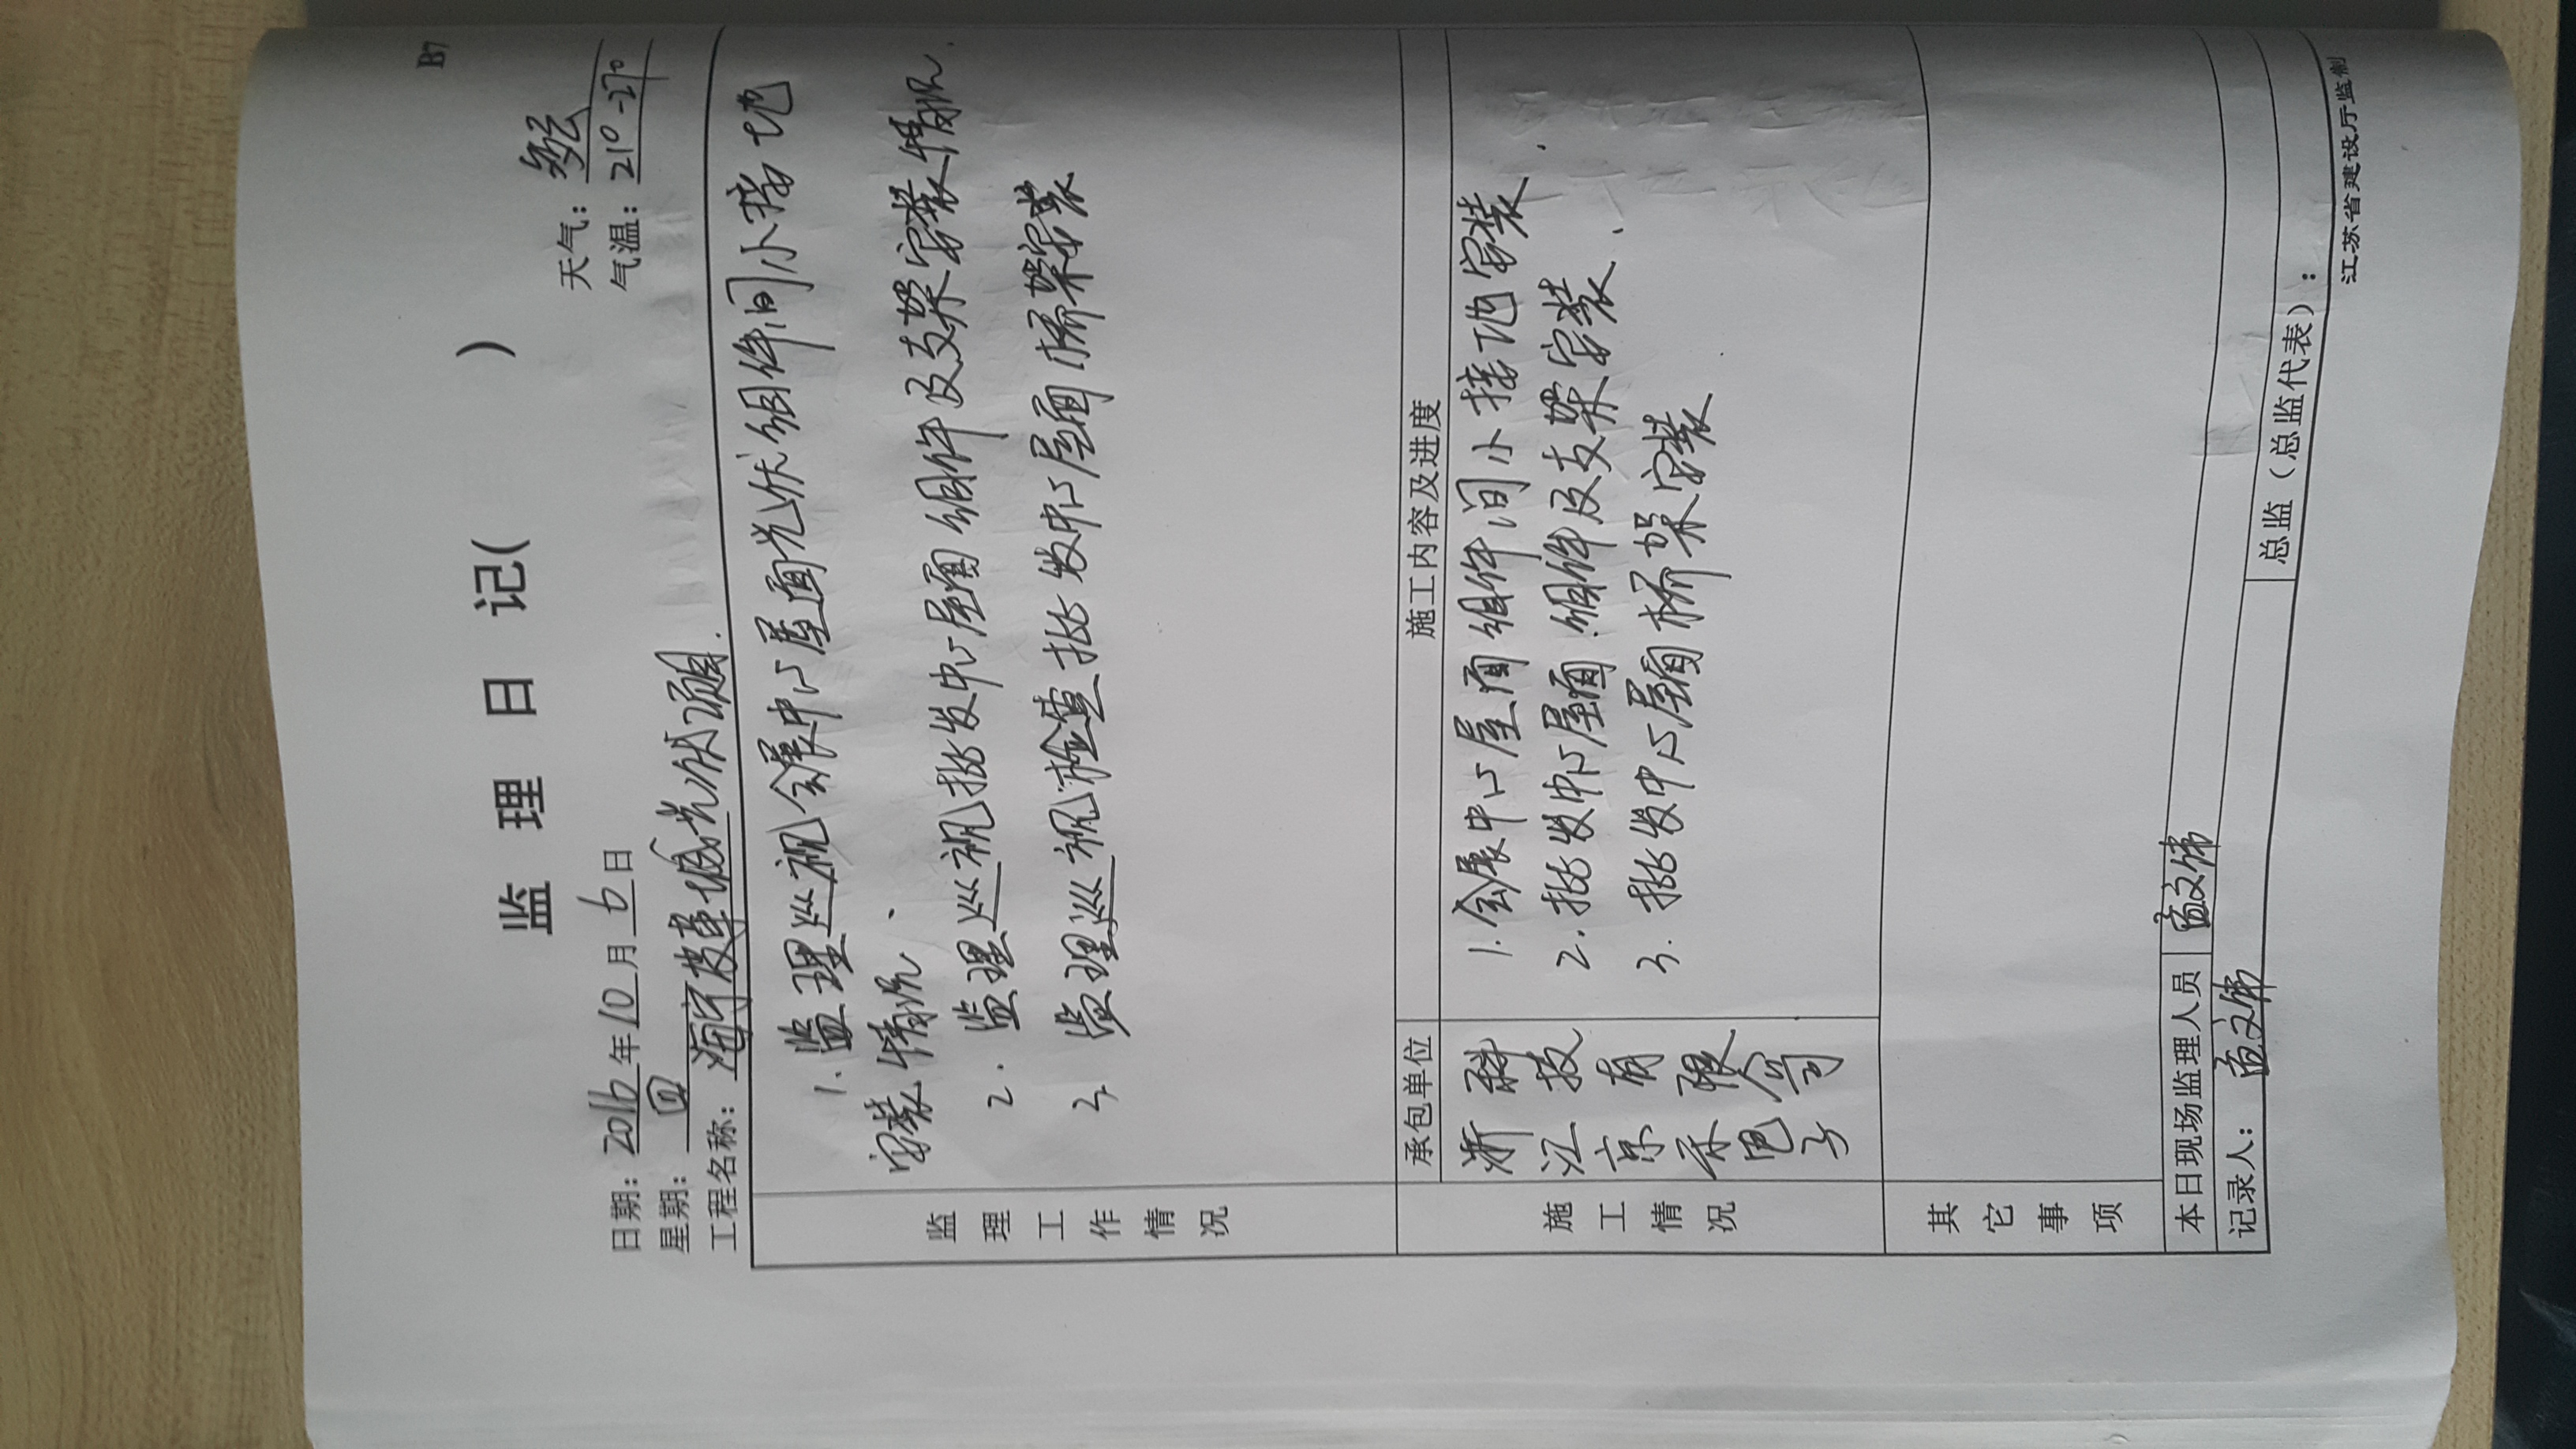 B7
监 理 日 记( )
日期：2016年10月6日 天气：多云
星期：四 气温：21°-27°
工程名称：海宁皮革城光伏项目.
监理工作情况
1.监理巡视会展中心屋面光伏组件间小接地
安装情况、
2.监理巡视批发中心屋面组件及支架安装情况.
3、监理巡视检查批发中心屋面桥架安装
施工情况
承包单位 施工内容及进度
浙江京
科技有限公司
1.会展中心屋面组件间小接地安装.
2.批发中心屋面组件及支架安装、
3.批发中心屋面桥架安装
其它事项
本日现场监理人员 孟文伟
记录人：孟文伟 总监（总监代表）：
江苏省建设厅监制